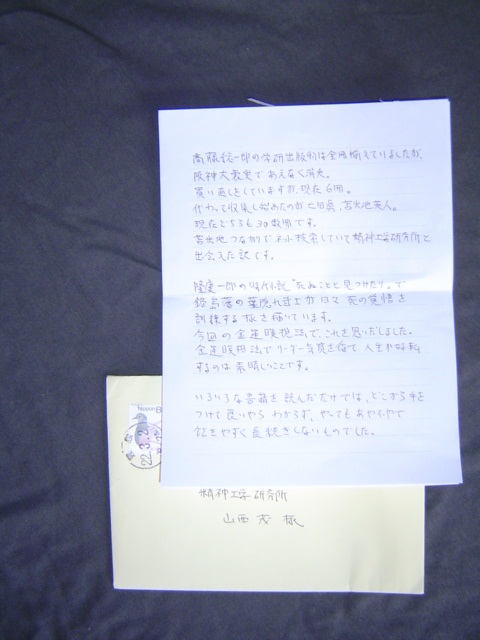 高藤聡一郎の学研出版物は全冊揃えていましたが、
阪神大震災であえなく消失。
買い直しをしていますが、現在6冊。
代わって収集し始めたのが七田眞、苫米地英人。
現在どちらも30数冊です。
苫米地つながりでネット検索していて精神工学研究所と
出会えた訳です。
隆慶一郎の時代小説“死ぬことと見つけたり”で
鍋島藩の葉隠れ武士が日々死の覚悟を
訓練する様を描いています。
今回の金運瞑想法で、これを思い出しました。
金運瞑想法で
人生が好転
するのは素晴しいことです。
いろいろな書籍を読んだだけでは、どこから手を
つけて良いやらわからず、やってもあやふやで
飽きやすく長続きしないものでした。
NIPPON 8
22.3.2
精神工学研究所
山西茂様